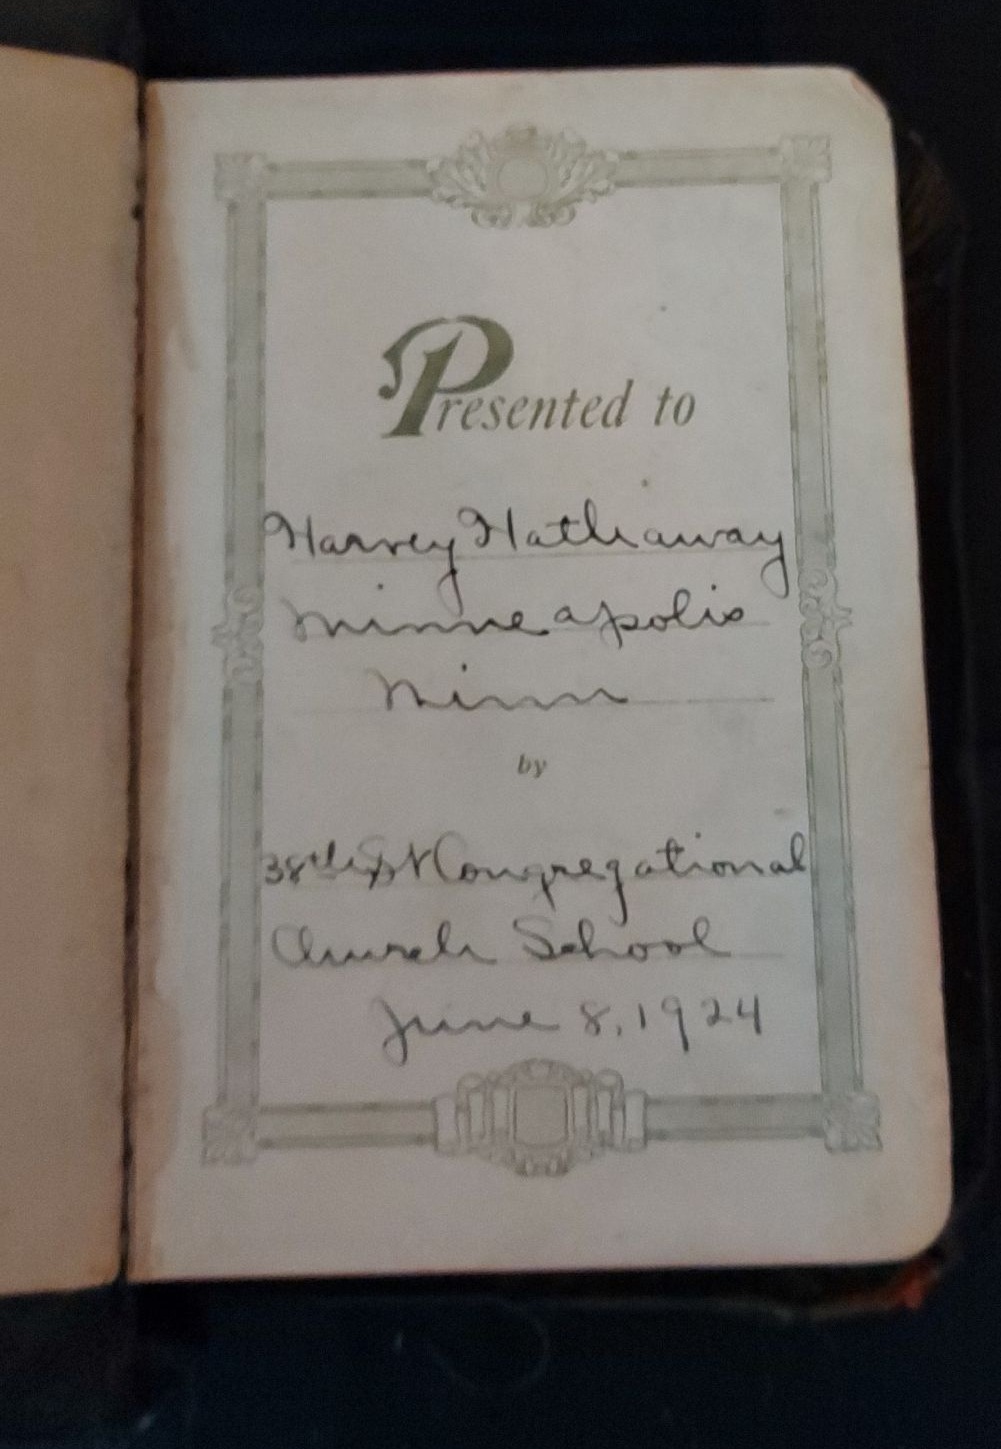 Presented to
Harvey Hathaway
Minneapolis
Minn
by
38th St Congregational
Church School
June 8, 1924